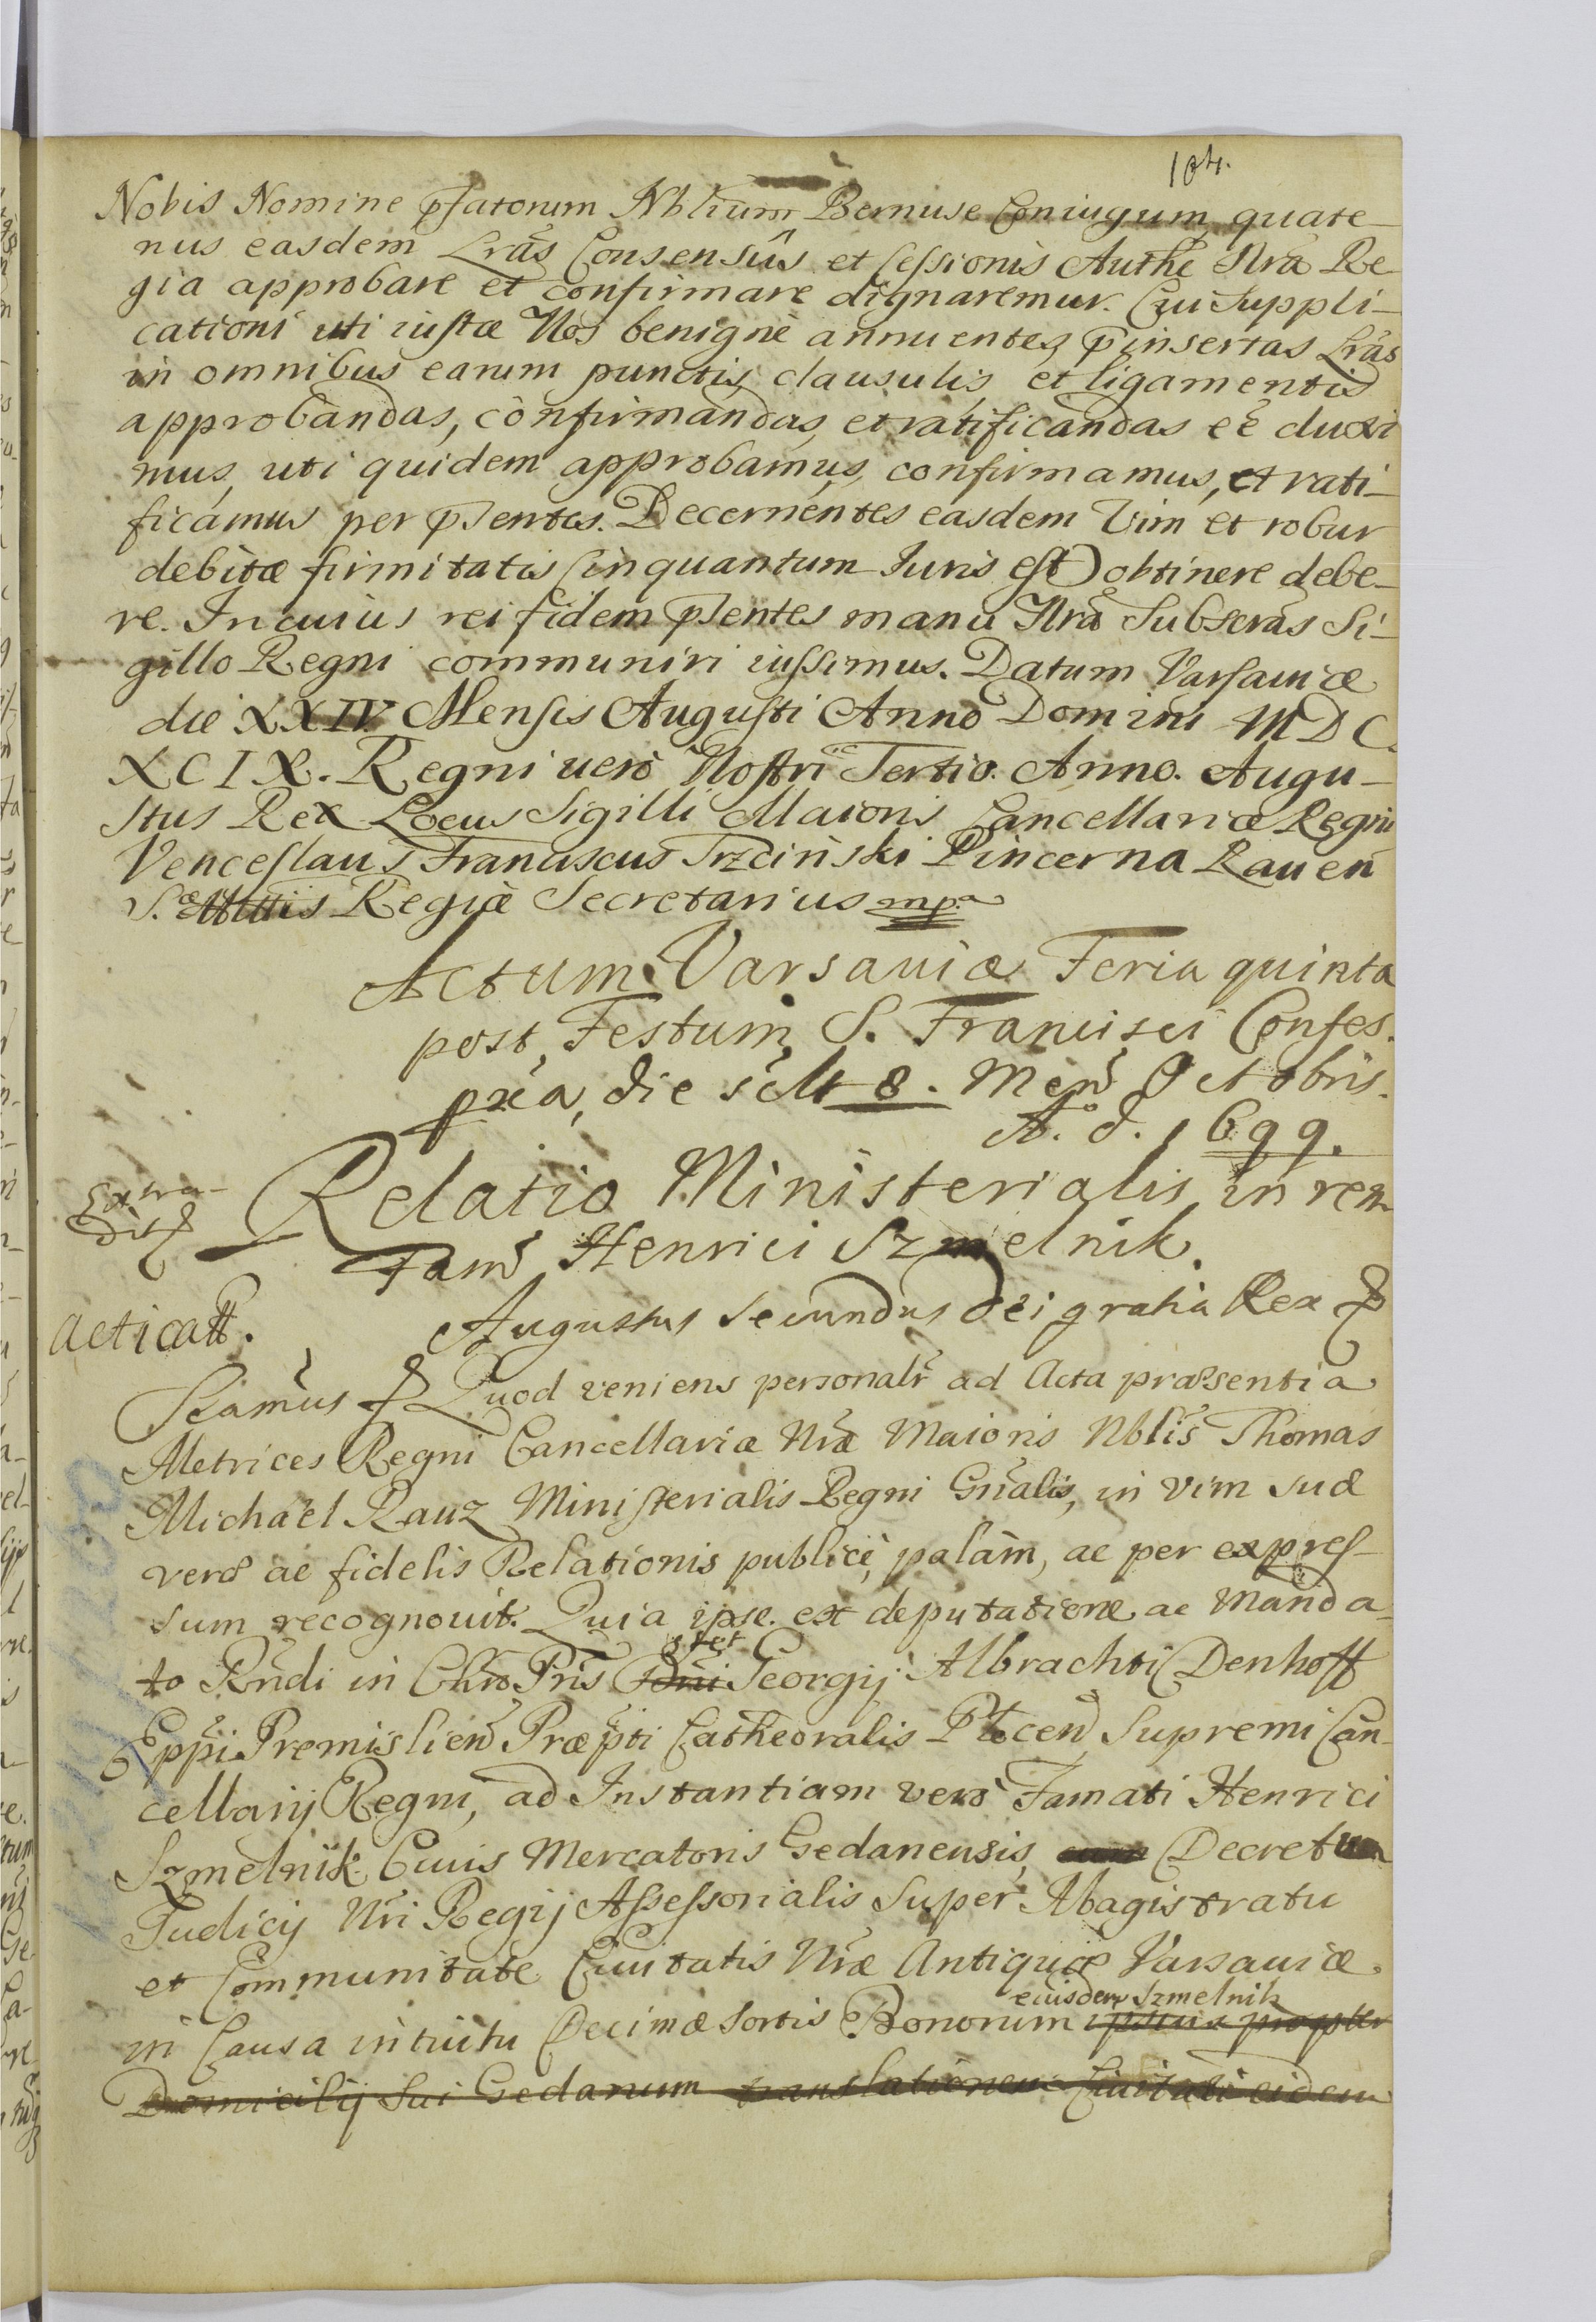 104.
Nobis Nomine pſatorum Nblium Bernuse Coniugum, quate-
nus easdem Lrãs Consensûs et Ceſsionis Authẽ Nrã Re-
gia approbare et confirmare dignaremur. Cui Suppli-
cationi uti iuſtæ Nos benignè annuentes, pinsertas Lrãs
in omnibus earum punctis, clausulis, et ligamentis
approbandas, confirmandas, et ratificandas eẽ duxi
mus, uti quidem approbamus, confirmamus, et rati-
ficamus per pſentes. Decernentes easdem Vim et robur
debitæ firmitatis (inquantum Iuris eſt) obtinere debe-
re. In cuius rei fidem pſentes manu Nrã Subscrãs Si-
gillo Regni communiri iuſsimus. Datum Varſauiæ
die XXIV Menſis Auguſti Anno Domini MDC.
XCIX. Regni uerò Noſtri Tertio. Anno. Augu-
stus Rex Locus Sigilli Maioris Cancellariæ Regni
Venceſlaus Franciscus Trzciński Pincerna Rauen
S. Mttis Regiæ Secretarius mpa
Actum Varsauiæ Feria quinta
post Festum S. Francisci Confes.
pxa, die sclt 8. Mens Octobris.
Aº. d. 1699.
Extra-
dit
Relatio Ministerialis in rem
Fam Henrici Szmelnik.
Acticatt.
Augustus Secundus Dei gratia Rex
Scamus Quod veniens personalr ad Acta præsentia
Metrices Regni Cancellariæ Nræ Maioris Nblis Thomas
Michaël Rauz Miniſterialis Regni Gnãlis, in vim suæ
veræ ac fidelis Relationis publicè, palàm, ac per expreſ-
sum recognouit. Quia ipse ex deputatione ac Manda-
stet
to Rndi in Chro Pris Dni Georgij Albrachti Denhoff
Eppi Premislien Præpti Cathedralis Plocen Supremi Can-
cellarij Regni, ad Instantiam verò Famati Henrici
Szmelnik Ciuis Mercatoris Gedanensis, Decretum
Judicij Nri Regij Aſseſsorialis Super Magistratu
et Communitate Ciuitatis Nræ Antiquæ Varsauiæ
eiusdem Szmelnik
in Causa intuitu Decimæ Sortis Bonorum ipsius propter
Domicilij Sui Gedanum translationem Ciuitati eidem